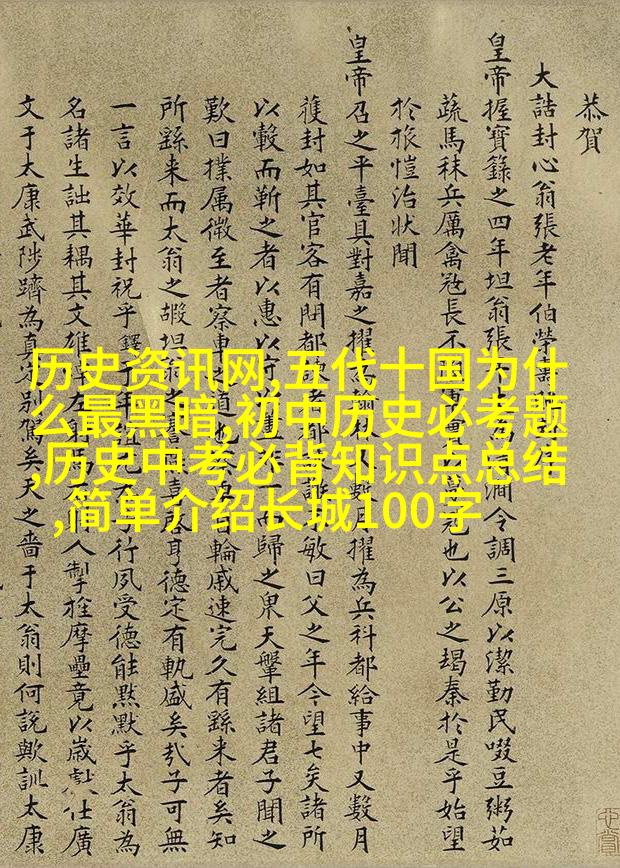 历史资讯网,五代十国为什
么最黑暗,初中历史必考题
,历史中考必背知识点总结
,简单介绍长城100字
恭賀
大誥封心翁張老年伯榮壽
皇帝握寶錄之四年坦翁張 澗令調三原以潔勤民啜豆粥如
蔬馬秣兵厲禽冦長不 也以公之竭秦於是乎始望
於旅愷治狀聞
皇帝召之平臺具對嘉之擢為 數月擢為兵科都給事中又數月
獲封如其官客有問都 敏曰父之年今望七矣諸所
以轂而靳之者以惠以 而歸之杲天鞶組諸君子聞之
歎曰樸属微至者察車之道也 輪戚速完久有繇来者矣知
所繇来而太翁之嘏坦翁之 喜 耳德定有軌盛矣㢤子可無
一言以效華封祝乎鐸 行夙受德能黙默乎太翁為
名諸生詘其耦其文雄 左 人掣捶摩壘竟以歲 仕廣
文于太康武陟躋為真定别駕矣天之嗇于太翁則何說歟訓太康